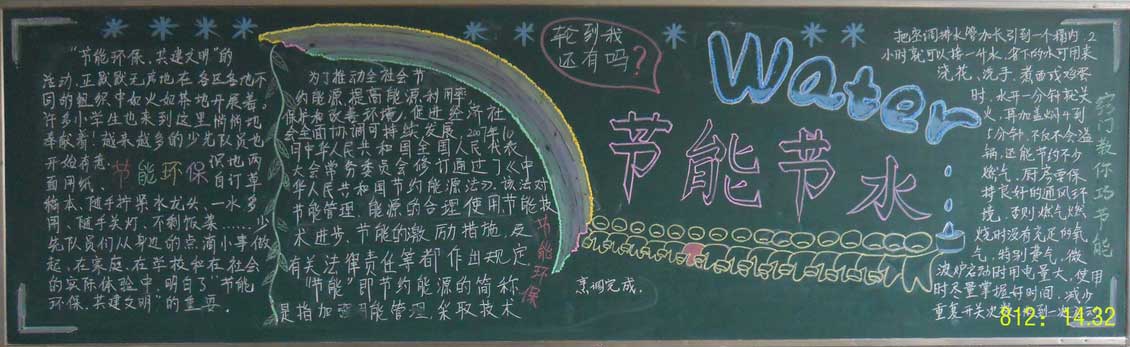 "节能环保、共建文明"的
活动,正默默无声地在各区各地不
同的组织中如火如荼地开展着。
许多小学生也来到这里悄悄地
奉献着!越来越多的少先队员也
开始有意
识地两
面用纸、
自订草
稿本、随手拧紧水龙头、一水多
用、随手关灯、不剩饭菜……少
先队员们从身边的点滴小事做
起,在家庭、在学校和在社会
的实际体验中,明白了"节能
环保、共建文明"的重要。
节能环保
为了推动全社会节
约能源,提高能源利用率,
保护和改善环境,促进经济社
会全面协调可持续发展,2007年10
月中华人民共和国全国人民代表
大会常务委员会修订通过了《中
华人民共和国节约能源法》,该法对
节能管理、能源的合理使用节能技
术进步、节能的激励措施及
有关法律责任等都作出规定
"节能"即节约能源的简称
是指加强用能管理,采取技术
节能环保
轮到我
还有吗?
Water
节能节水
烹调完成.
把空调排水管加长引到一个桶内,2
小时就可以接一升水,省下的水可用来
浇花、洗手,煮面或鸡蛋
时,水开一分钟就关
火,再加盖焖十到
5分钟,不仅不会溢
锅,还能节约不少
燃气,厨房要保
持良好的通风环
境,否则燃气燃
烧时没有充足的氧
气,特别费气,微
波炉启动时用电量大,使用
时尽量掌握好时间,减少
重复开关次数,做到一次
窍门教你巧节能
812: 14.32